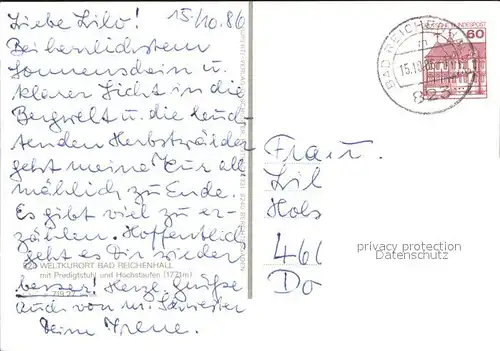 Liebe Lilo! 15/10.86
Bei herrlichstem
Sonnenschein u.
klarer Sicht in die
Bergwelt u. die leuch-
tenden Herbstwälder
geht meine Kur all
mählich zu Ende.
Es gibt viel zu er-
zählen. Hoffentlich
geht es Dir wieder
WELTKURORT BAD REICHENHALL
mit Predigtstuhl und Hochstaufen (1771m)
besser! Herzl. Grüße
auch von m. Schwester
Deine Irene.
BAD REICHENHALL
15.10.
823
BUNDESPOST
60
Frau
Lil
Hols
466
Do
privacy protection
Datenschutz